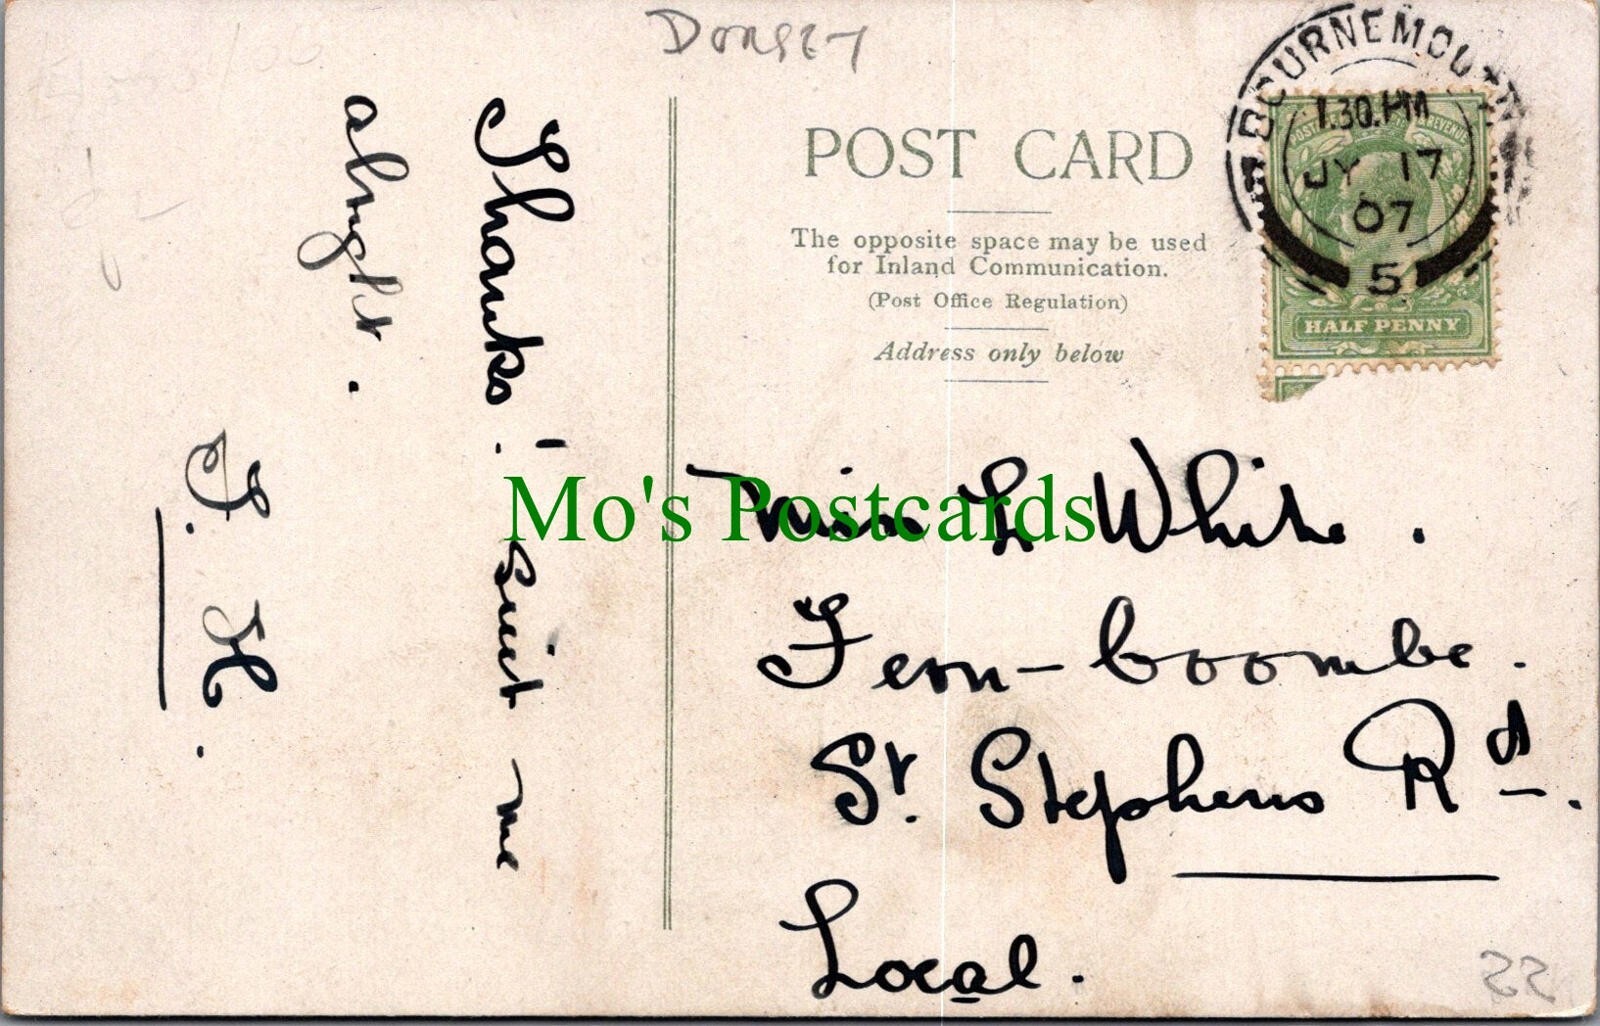 DORSET
POST CARD
The opposite space may be used
for Inland Communication.
(Post Office Regulation)
Address only below
BOURNEMOUTH
1.30.PM
JY 17
07
5
HALF PENNY
Thanks! suit me
alright.
T. H.
Miss L White.
Fern-Coombe.
St. Stephens Rd.
Local.
Mo's Postcards
22